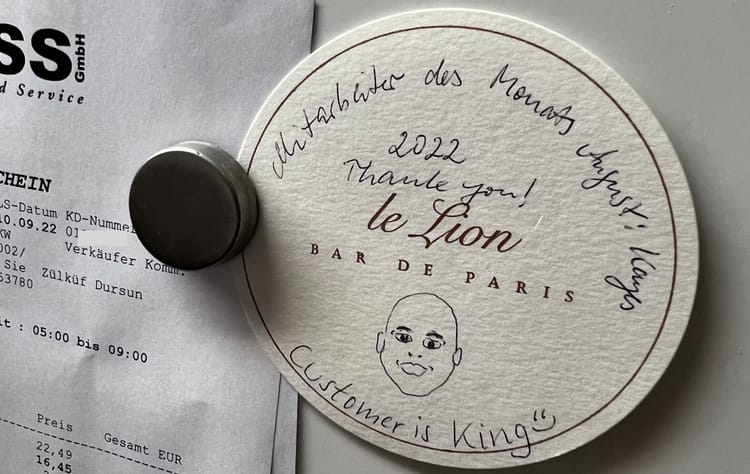 SS
GmbH
d Service
CHEIN
LS-Datum KD-Nummer
10.09.22 01
KW
002/ Verkäufer Komm.
Sie Zülküf Dursun
53780
it : 05:00 bis 09:00
Preis Gesamt EUR
22,49
16,45
Mitarbeiter des Monats August: Kays
2022
Thank you!
le Lion
BAR DE PARIS
Customer is King